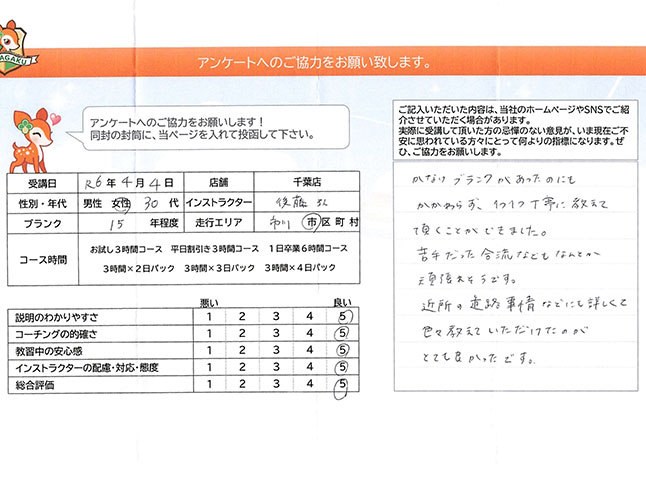 AGAKU
アンケートへのご協力をお願い致します。
アンケートへのご協力をお願いします！
同封の封筒に、当ページを入れて投函して下さい。
ご記入いただいた内容は、当社のホームページやSNSでご紹
介させていただく場合があります。
実際に受講して頂いた方の忌憚のない意見が、いま現在ご不
安に思われている方々にとって何よりの指標になります。ぜ
ひ、ご協力をお願いします。
受講日 R6 年 4 月 4 日 店舗 千葉店
性別・年代 男性 女性 30 代 インストラクター 後藤 さん
ブランク 15 年程度 走行エリア 市川 市 区 町 村
コース時間 お試し3時間コース 平日割引き3時間コース 1日卒業6時間コース
3時間×2日パック 3時間×3日パック 3時間×4日パック
悪い 良い
説明のわかりやすさ 1 2 3 4 5
コーチングの的確さ 1 2 3 4 5
教習中の安心感 1 2 3 4 5
インストラクターの配慮・対応・態度 1 2 3 4 5
総合評価 1 2 3 4 5
かなりブランクがあったのにも
かかわらず、1つ1つ丁寧に教えて
頂くことができました。
苦手だった合流などもなんとか
頑張れそうです。
近所の道路事情などにも詳しくて
色々教えていただけたのが
とても良かったです。